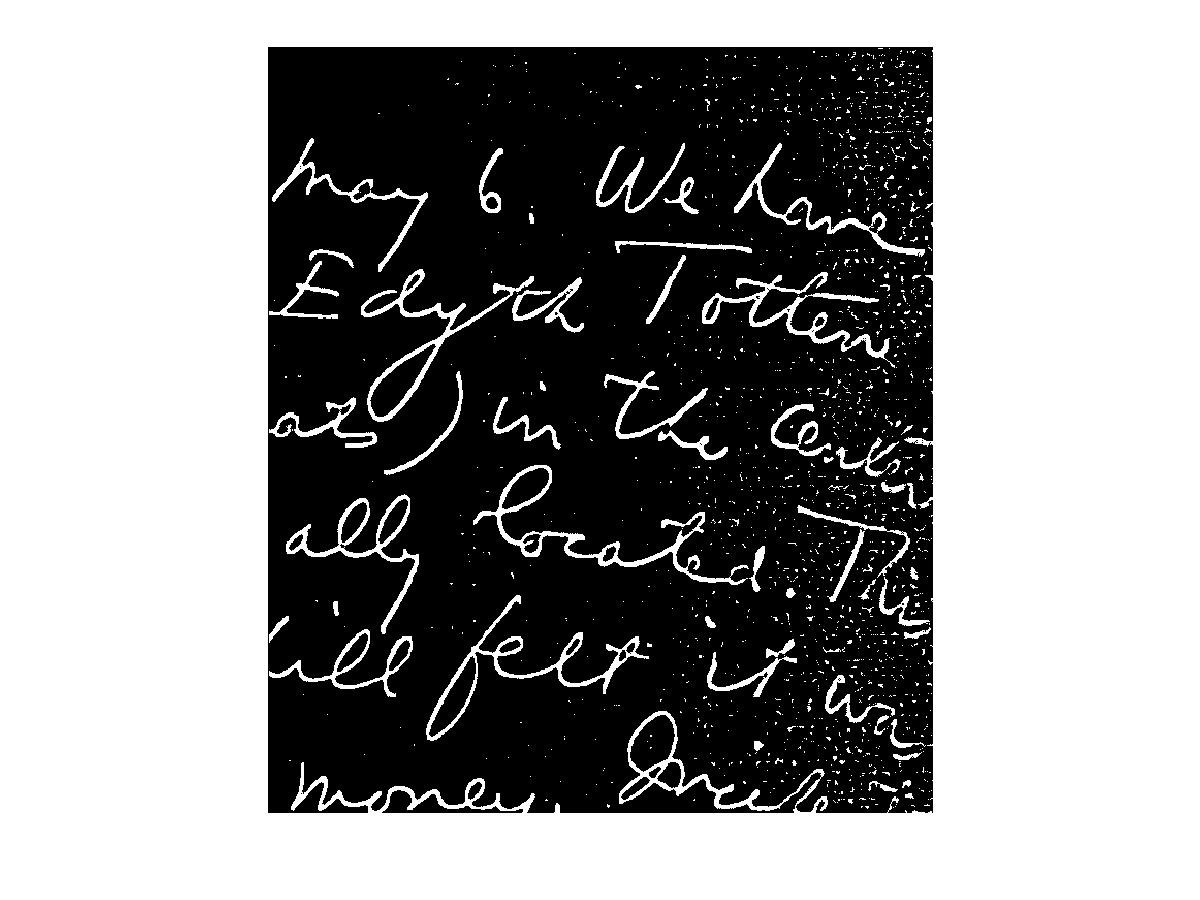 May 6. We have
Edyth Totten
ats) in the center
ally located. This
Will felt it was
money.